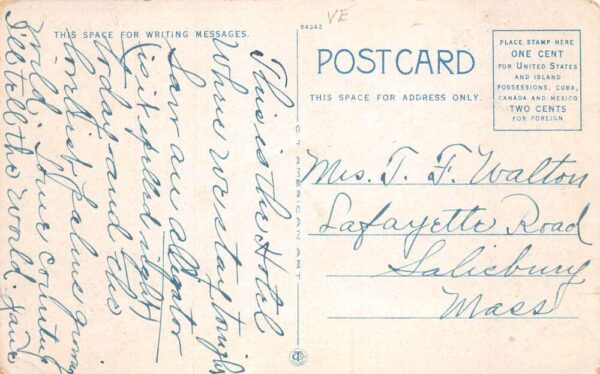 VE
THIS SPACE FOR WRITING MESSAGES.
This is the Hotel
Where we stay tonight
Saw an alligator
(is it spelled right)
today and the
lovliest palms growing
wild. Some country
I'll tell the world. Jane
C.T. AMERICAN ART
POST CARD
THIS SPACE FOR ADDRESS ONLY.
PLACE STAMP HERE
ONE CENT
FOR UNITED STATES
AND ISLAND
POSSESSIONS, CUBA,
CANADA AND MEXICO
TWO CENTS
FOR FOREIGN
Mrs. T. F. Walton
Lafayette Road
Salisbury
Mass